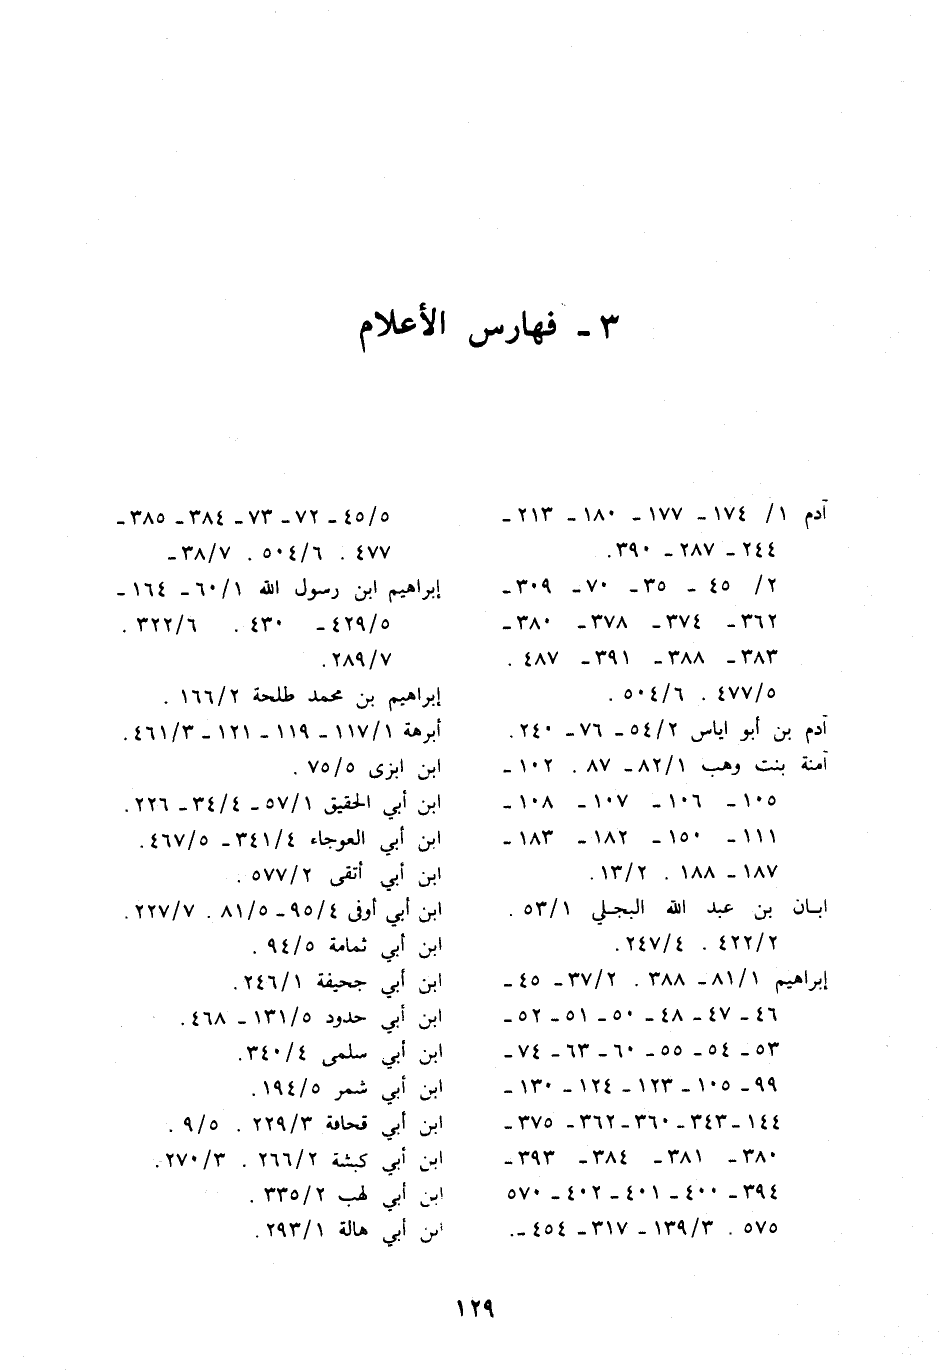 ٣ - فهارس الأعلام
آدم ١/ ١٧٤ - ١٧٧ - ١٨٠ - ٢١٣ -
٢٤٤ - ٢٨٧ - ٣٩٠.
٢/ ٤٥ - ٣٥ - ٧٠ - ٣٠٩ -
٣٦٢ - ٣٧٤ - ٣٧٨ - ٣٨٠ -
٣٨٣ - ٣٨٨ - ٣٩١ - ٤٨٧ .
٤٧٧/٥ . ٥٠٤/٦ .
آدم بن أبو اياس ٥٤/٢ - ٧٦ - ٢٤٠.
آمنة بنت وهب ٨٢/١ - ٨٧ . ١٠٢ -
١٠٥ - ١٠٦ - ١٠٧ - ١٠٨ -
١١١ - ١٥٠ - ١٨٢ - ١٨٣ -
١٨٧ - ١٨٨ . ١٣/٢.
ابان بن عبد الله البجلي ٥٣/١ .
٤٢٢/٢ . ٢٤٧/٤.
إبراهيم ٨١/١ - ٣٨٨ . ٣٧/٢ - ٤٥ -
٤٦ - ٤٧ - ٤٨ - ٥٠ - ٥١ - ٥٢ -
٥٣ - ٥٤ - ٥٥ - ٦٠ - ٦٣ - ٧٤ -
٩٩ - ١٠٥ - ١٢٣ - ١٢٤ - ١٣٠ -
١٤٤ - ٣٤٣ - ٣٦٠ - ٣٦٢ - ٣٧٥ -
٣٨٠ - ٣٨١ - ٣٨٤ - ٣٩٣ -
٣٩٤ - ٤٠٠ - ٤٠١ - ٤٠٢ - ٥٧٠
٥٧٥ . ١٣٩/٣ - ٣١٧ - ٤٥٤ -.
٤٥/٥ - ٧٢ - ٧٣ - ٣٨٤ - ٣٨٥ -
٤٧٧ . ٥٠٤/٦ . ٣٨/٧ -
إبراهيم ابن رسول الله ٦٠/١ - ١٦٤ -
٤٢٩/٥ - ٤٣٠ . ٣٢٢/٦ .
٢٨٩/٧.
إبراهيم بن محمد طلحة ١٦٦/٢ .
أبرهة ١١٧/١ - ١١٩ - ١٢١ - ٤٦١/٣.
ابن ابزى ٧٥/٥ .
ابن أبي الحقيق ٥٧/١ - ٣٤/٤ - ٢٢٦.
ابن أبي العوجاء ٣٤١/٤ - ٤٦٧/٥.
ابن أبي أتقى ٥٧٧/٢ .
ابن أبي أوفى ٩٥/٤ - ٨١/٥ . ٢٢٧/٧.
ابن أبي ثمامة ٩٤/٥ .
ابن أبي جحيفة ٢٤٦/١.
ابن أبي حدود ١٣١/٥ - ٤٦٨.
ابن أبي سلمى ٣٤٠/٤.
ابن أبي شمر ١٩٤/٥.
ابن أبي قحافة ٢٢٩/٣ . ٩/٥ .
ابن أبي كبشة ٢٦٦/٢ . ٢٧٠/٣.
ابن أبي لهب ٣٣٥/٢ .
ابن أبي هالة ٢٩٣/١.
١٢٩